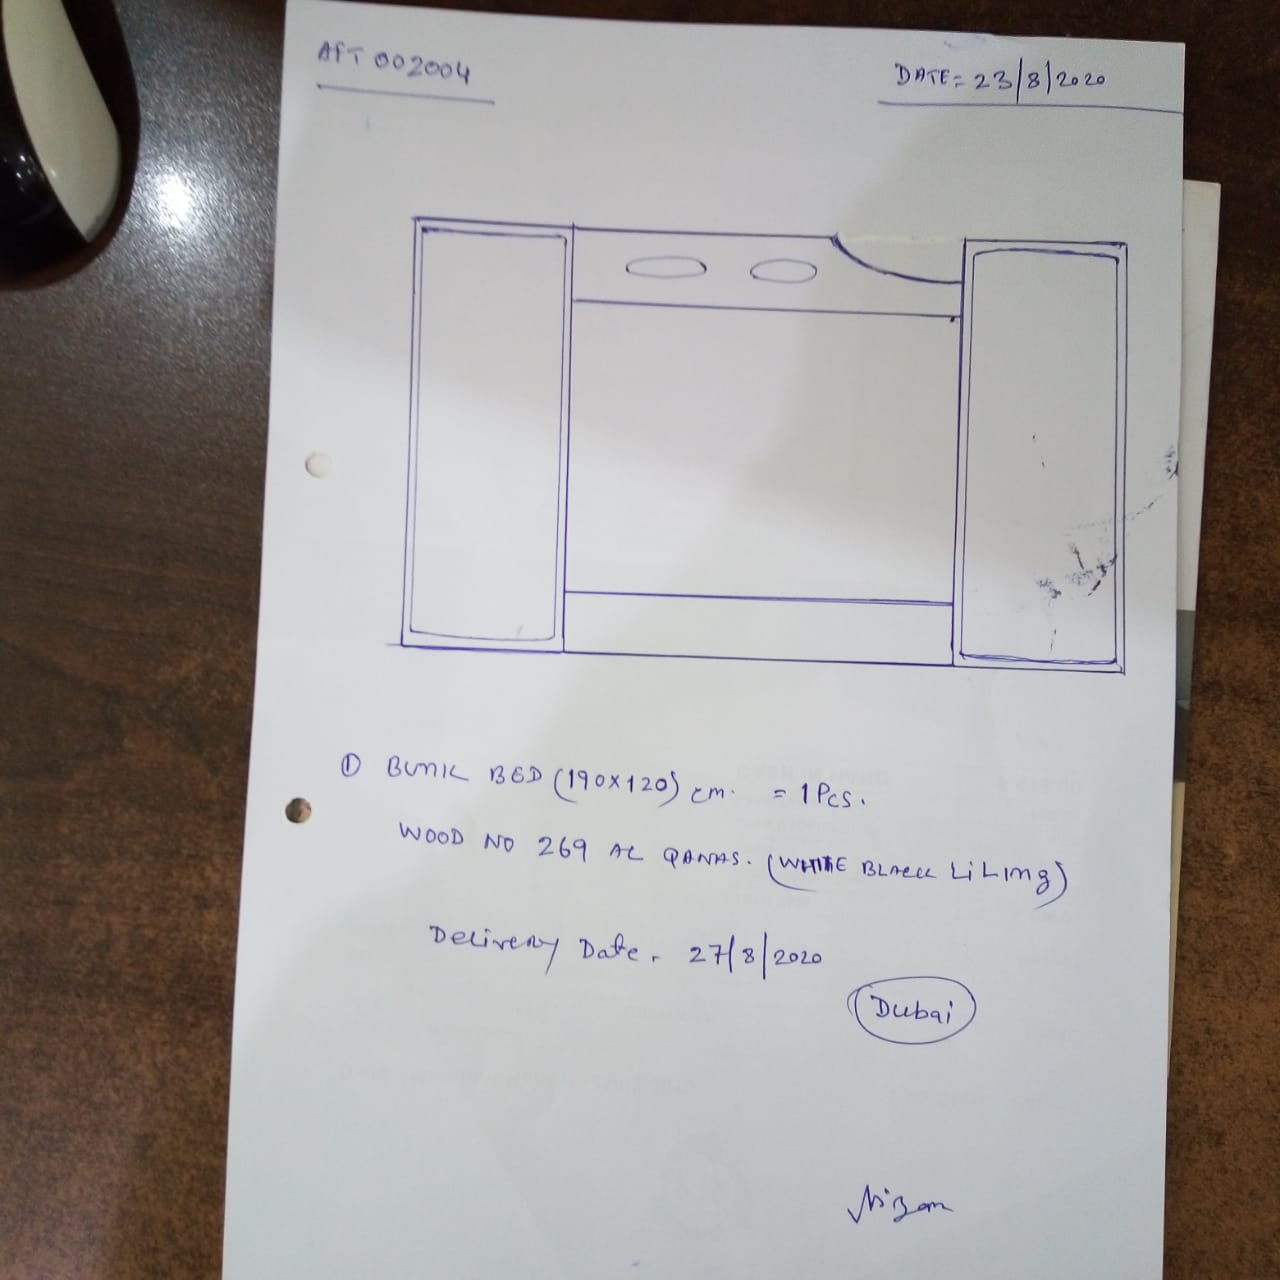 AFT 002004
DATE = 23/8/2020
① BUNK BED (190x120) cm. = 1 Pcs.
WOOD NO 269 AL QANAS. (WHITE BLACK LiLing)
Delivery Date. 27/8/2020
Dubai
Nizam